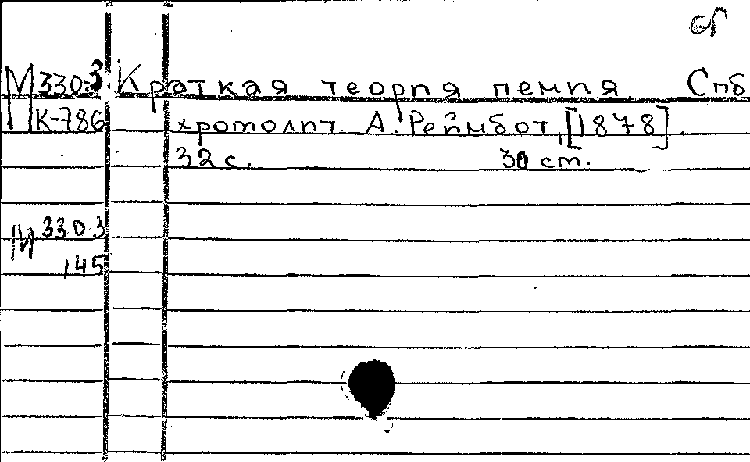 СЛ
М 330.3 Краткая теория пемия Спб
К-786 хромолит. А. Реймбот, [1878].
32 с. 30 ст.
М 330.3
145